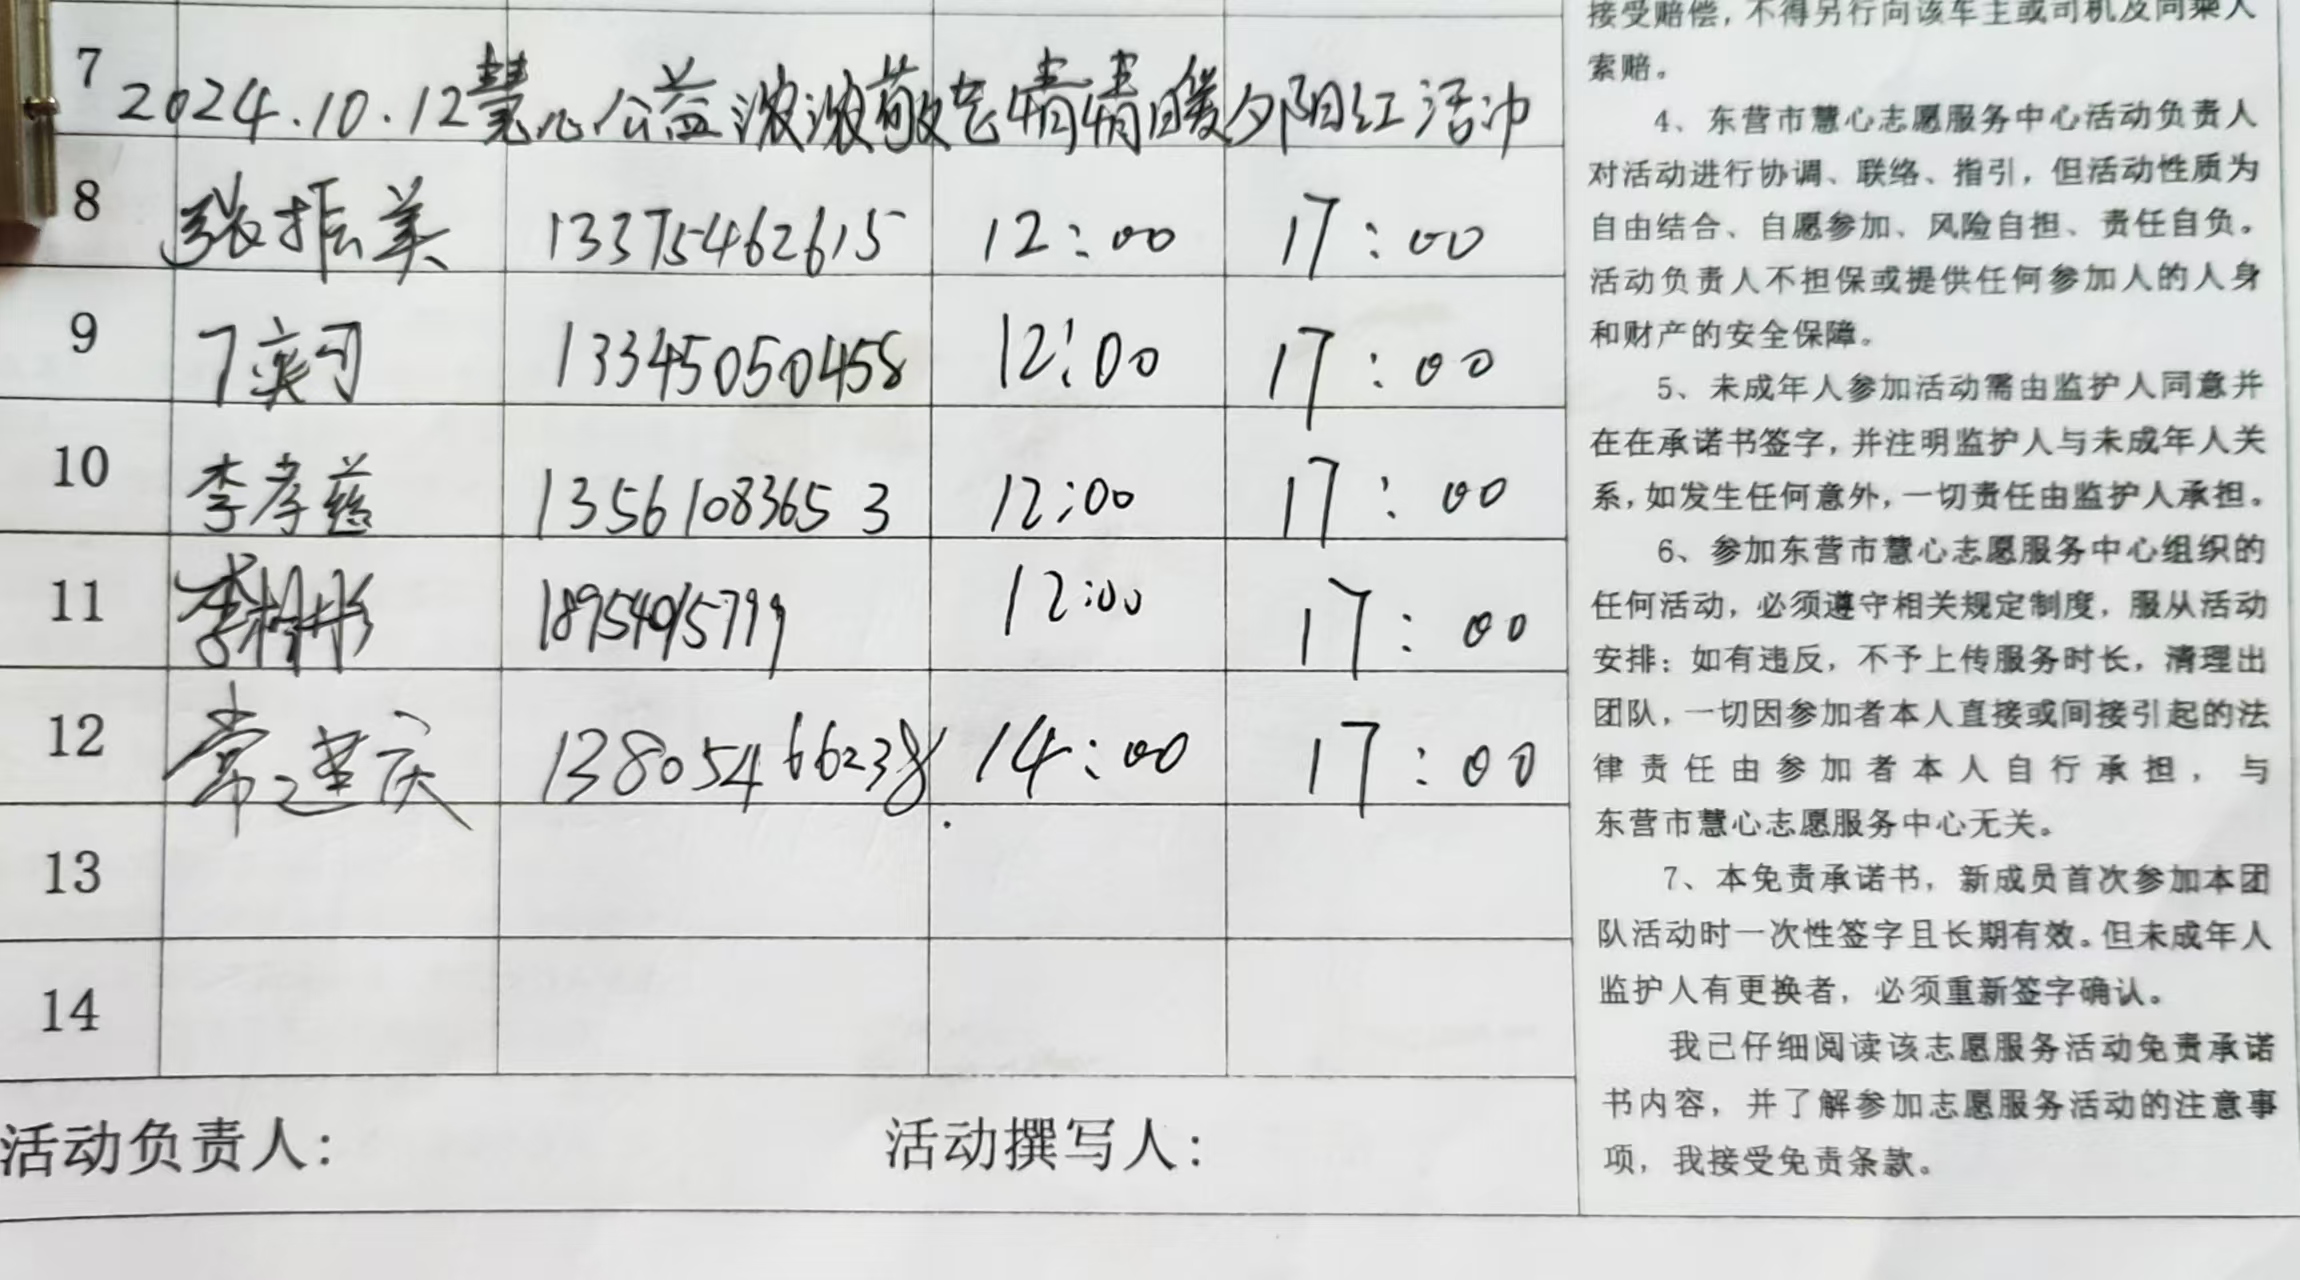 7
2024.10.12慧心公益浓浓敬老情情暖夕阳红活动
8 张振美 13375462615 12:00 17:00
9 丁奕可 13345050458 12:00 17:00
10 李孝慈 13561083653 12:00 17:00
11 李 12:00 17:00
12 常建庆 13805466238 14:00 17:00
13
14
活动负责人: 活动撰写人:
接受赔偿，不得另行向该车主或司机及同乘人
索赔。
4、东营市慧心志愿服务中心活动负责人
对活动进行协调、联络、指引，但活动性质为
自由结合、自愿参加、风险自担、责任自负。
活动负责人不担保或提供任何参加人的人身
和财产的安全保障。
5、未成年人参加活动需由监护人同意并
在在承诺书签字，并注明监护人与未成年人关
系，如发生任何意外，一切责任由监护人承担。
6、参加东营市慧心志愿服务中心组织的
任何活动，必须遵守相关规定制度，服从活动
安排；如有违反，不予上传服务时长，清理出
团队，一切因参加者本人直接或间接引起的法
律责任由参加者本人自行承担，与
东营市慧心志愿服务中心无关。
7、本免责承诺书，新成员首次参加本团
队活动时一次性签字且长期有效。但未成年人
监护人有更换者，必须重新签字确认。
我已仔细阅读该志愿服务活动免责承诺
书内容，并了解参加志愿服务活动的注意事
项，我接受免责条款。